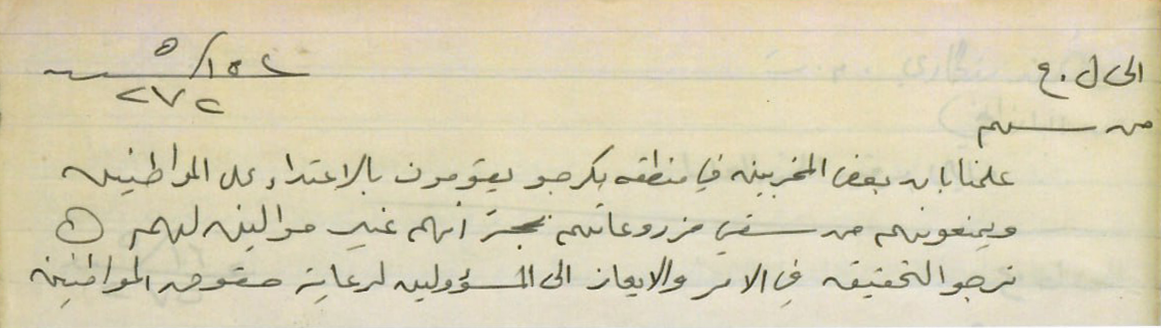 الى ل . ع
علمنا بان بعض المخربين في منطقه بكرجو يقومون بالاعتداء على المواطنين
ويمنعونهم من سقي مزروعاتهم بحجة انهم غير موالين لهم (٥)
نرجو التحقيق في الامر والايعاز الى المسؤولين لرعاية حقوق المواطنين